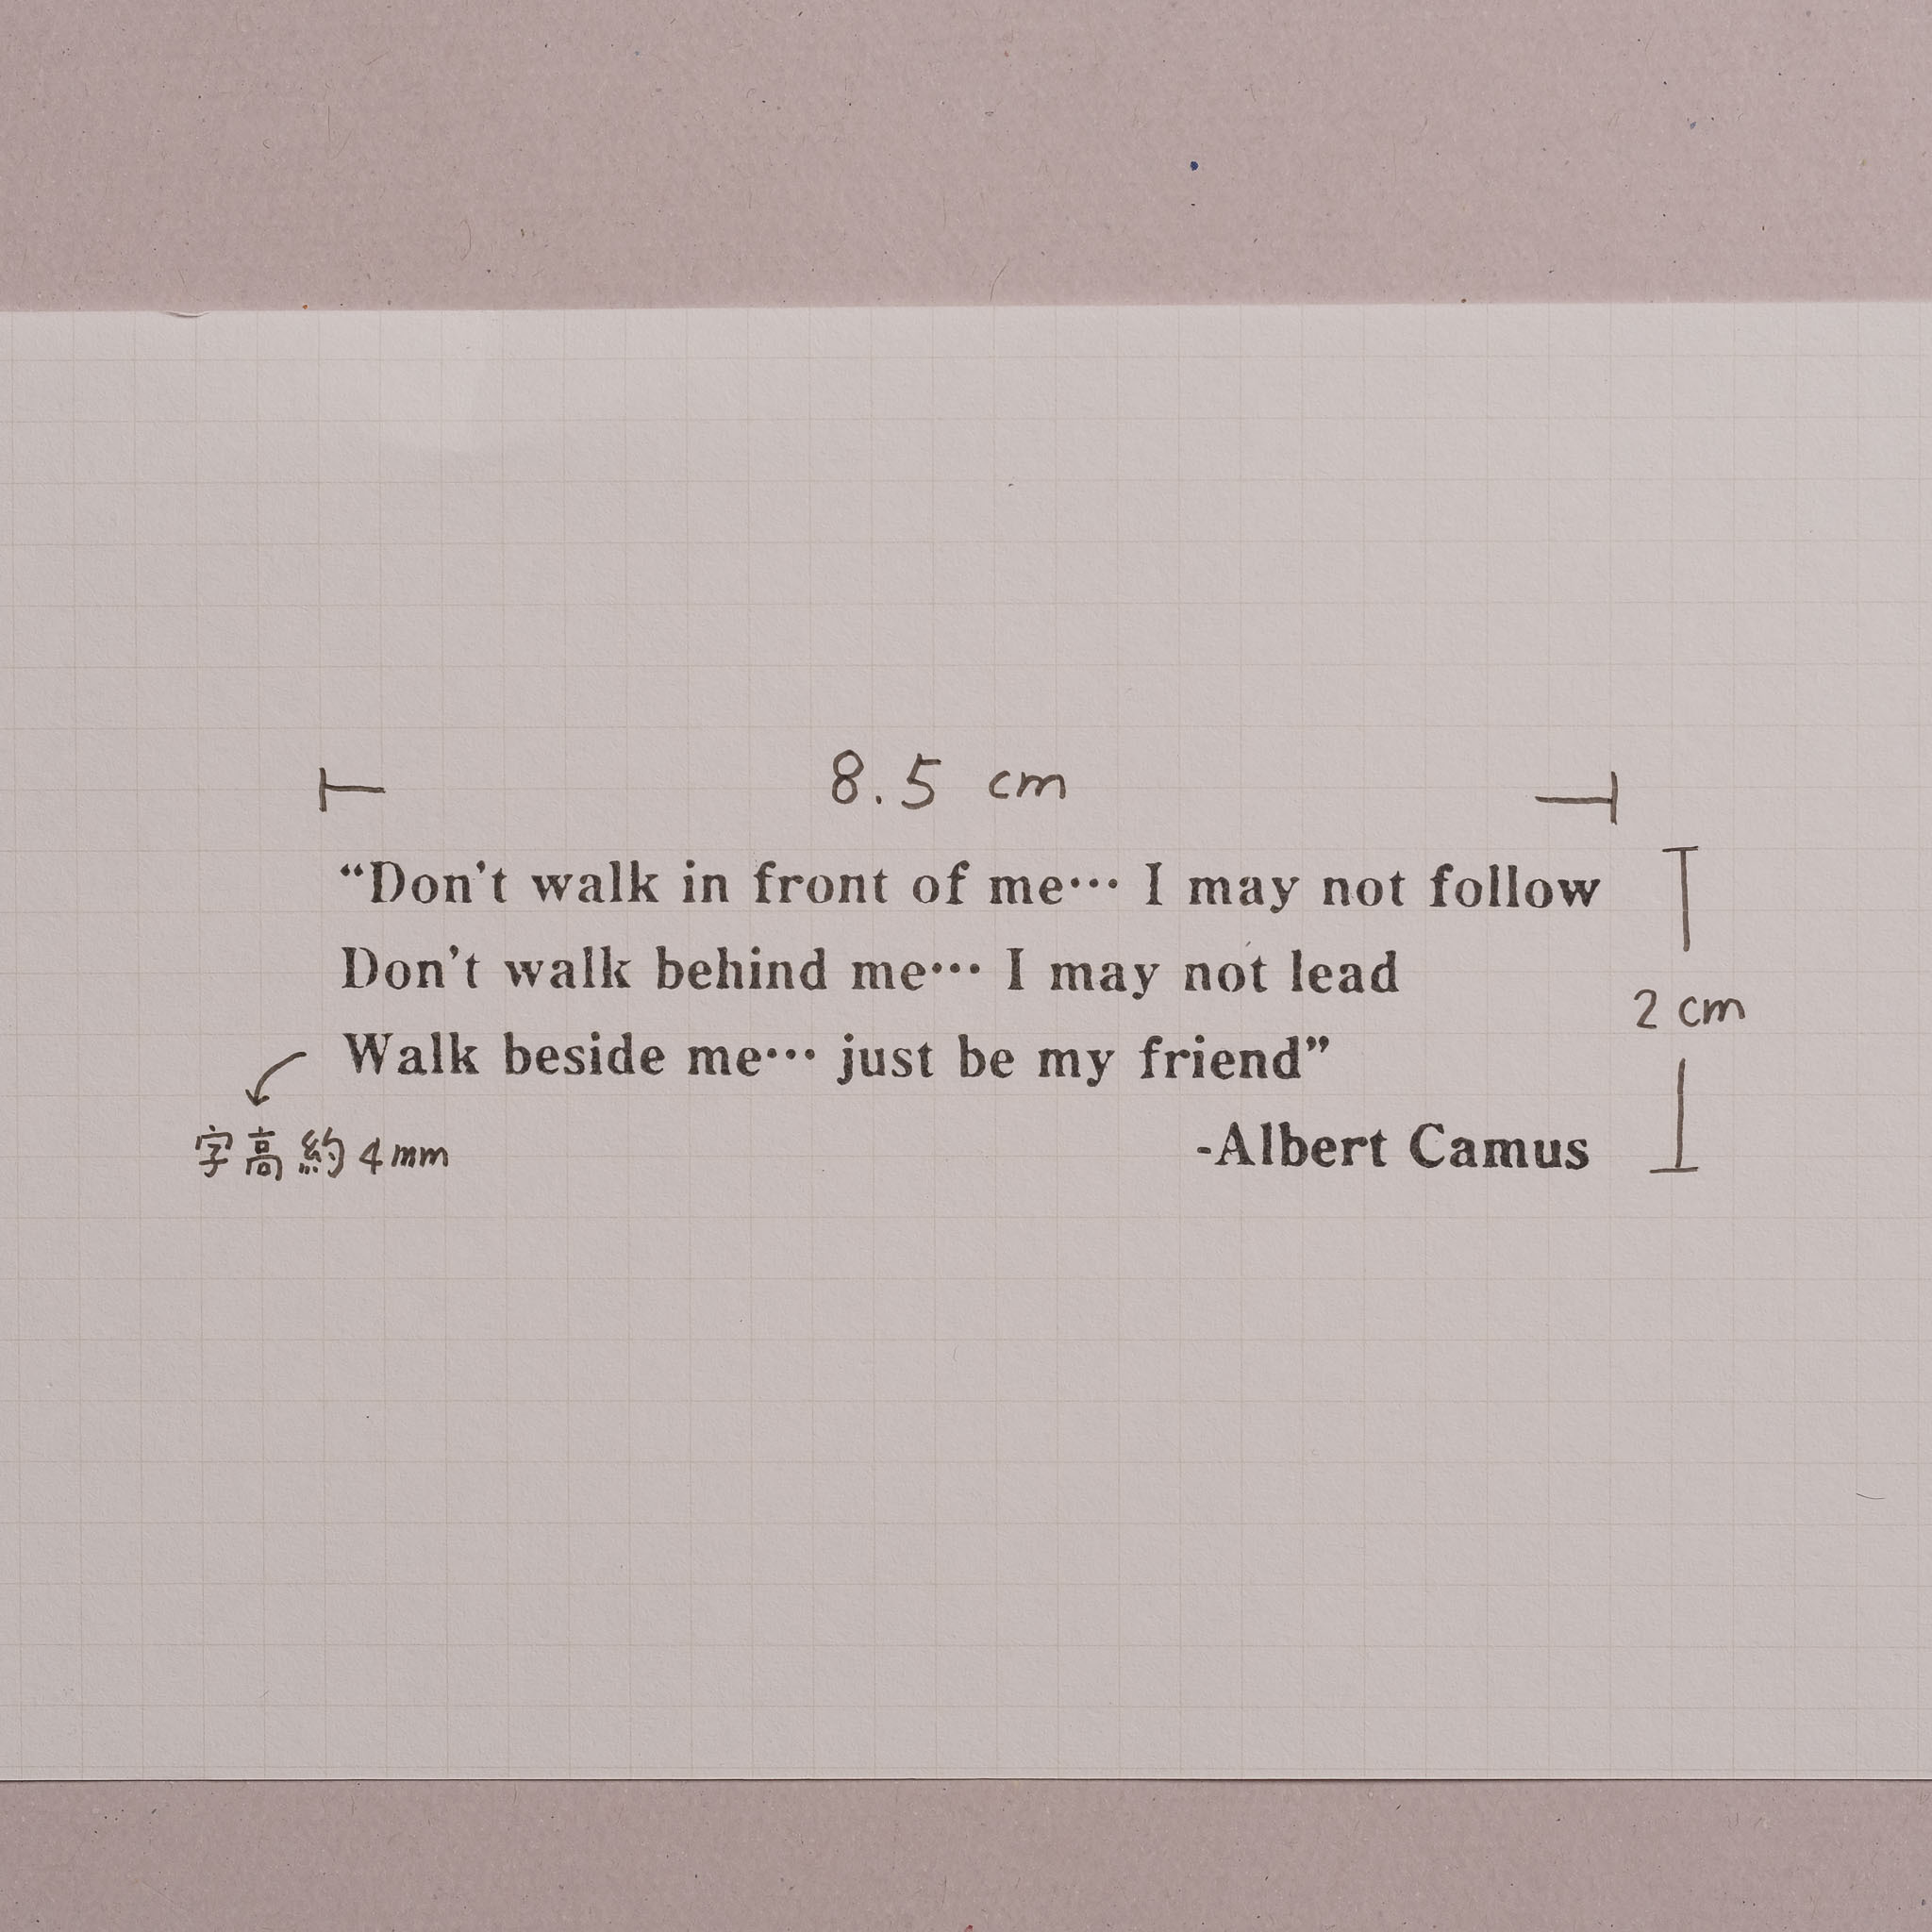 8.5 cm
“Don't walk in front of me… I may not follow
Don't walk behind me… I may not lead
2 cm
Walk beside me… just be my friend”
字高約4mm
-Albert Camus